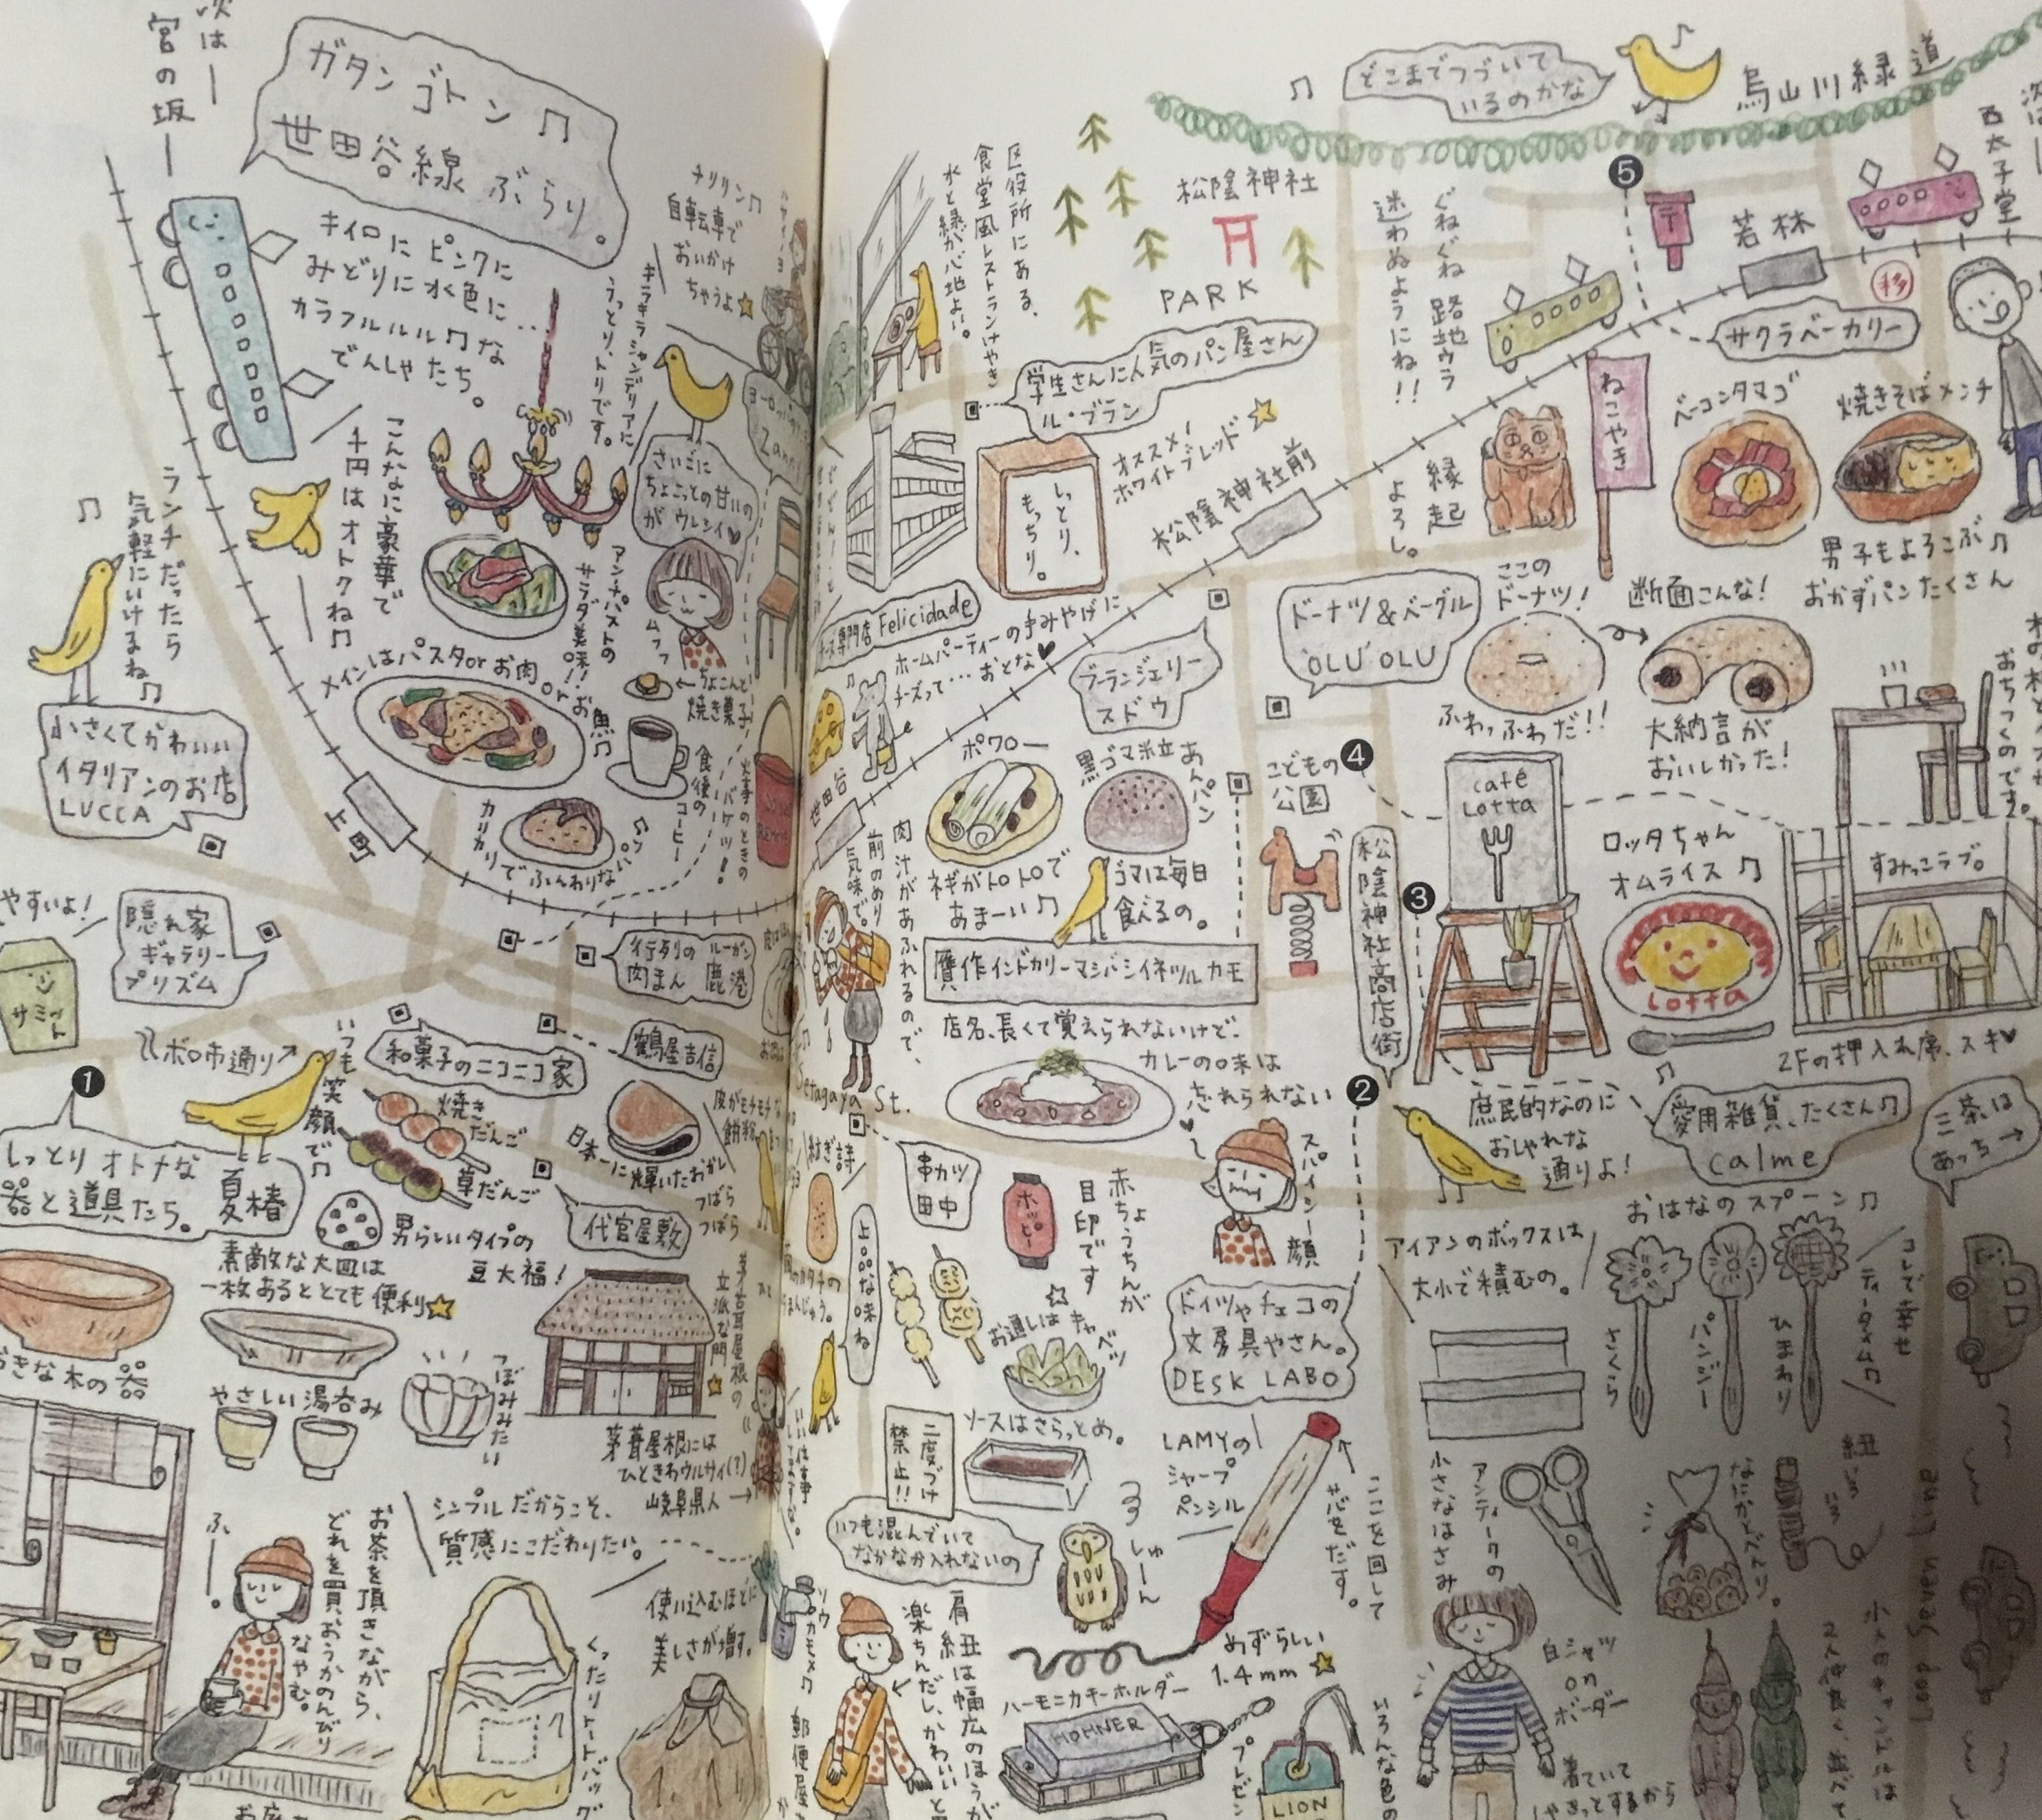 次は
宮の坂
ガタンゴトン♫
世田谷線ぶらり。
キイロに ピンクに
みどりに 水色に…
カラフルルル♫な
でんしゃたち。
チリリン♫
自転車で
おいかけ
ちゃうよ
キラキラシャンデリアに
うっとり、トリです。
こんなに豪華で
千円はオトクね♫
ランチだったら
気軽にいけるね♫
小さくてかわいい
イタリアンのお店
LUCCA
さいごに
ちょこっとの甘いの
が ウレシイ
アンチパストの
サラダ美味!!
ムフフ
メインはパスタorお肉orお魚♫
←ちょこんと
焼き菓子
食後の
コーヒー
カリカリで ふんわりなパン♫
火事のときの
バケツ!
上町
やすいよ!
サミット
隠れ家
ギャラリー
プリズム
行列の
肉まん
ルーガン
鹿港
ボロ市通り
いつも
笑顔で♫
和菓子のニコニコ家
焼き
だんご
草だんご
鶴屋吉信
日本一に輝いたおかし
つばら
つばら
男らしいタイプの
豆大福!
代官屋敷
茅葺屋根の
立派な門
茅葺屋根には
ひときわウルサイ(?)
岐阜県人→
1
しっとりオトナな
器と道具たち。
夏椿
素敵な大皿は
一枚あるととても便利
おきな木の器
やさしい湯呑み
つぼみみたい
シンプルだからこそ、
質感にこだわりたい。
お茶を頂きながら、
どれを買おうかのんびり
なやむ。
ふー。
使い込むほどに
美しさが増す。
くったりトートバッグ
どこまでつづいて
いるのかな
烏山川緑道
次は
西太子堂
区役所にある、
食堂風レストランけやき
水と緑が心地よい。
松陰神社
PARK
ぐねぐね路地ウラ
迷わぬようにね!!
5
若林
サクラベーカリー
学生さんに人気のパン屋さん
ル・ブラン
しっとり、
もっちり。
オススメ!
ホワイトブレッド
松陰神社前
縁起
よろし。
ねこやき
ベーコンタマゴ
焼きそばメンチ
男子もよろこぶ♫
おかずパンたくさん
チーズ専門店 Felicidade
ホームパーティーの手みやげに
チーズって…おとな
ブーランジェリー
スドウ
ドーナツ&ベーグル
'OLU'OLU
ここの
ドーナツ!
断面こんな!
ふわっふわだ!!
大納言が
おいしかった!
世田谷
ポワロー
ネギがトロトロで
あまーい♫
黒ゴマ粒
あんパン
ゴマは毎日
食べるの。
こどもの
公園
4
松陰神社商店街
3
café
Lotta
ロッタちゃん
オムライス♫
Lotta
すみっこラブ。
2Fの押入れ席、スキ
肉汁があふれるので、
前のめり
気味で。
贋作インドカリーマシバシイネツルカモ
店名、長くて覚えられないけど…
カレーの味は
忘れられない
Setagaya St.
スパイシー顔
2
庶民的なのに
おしゃれな
通りよ!
愛用雑貨、たくさん♫
calme
三茶は
あっち→
串カツ
田中
ホッピー
赤ちょうちんが
目印です
上品な味ね
お通しはキャベツ
ソースはさらっとめ。
二度づけ
禁止!!
いつも混んでいて
なかなか入れないの
ドイツやチェコの
文房具やさん。
DESK LABO
LAMYの
シャープ
ペンシル
ここを回して
芯をだす。
めずらしい
1.4mm
しゅーん
肩紐は幅広のほうが
楽ちんだし、かわいいと
ハーモニカキーホルダー
HOHNER
LION
アイアンのボックスは
大小で積むの。
おはなのスプーン♫
さくら
パンジー
ひまわり
コレで幸せ
ティータイム♫
アンティークの
小さなはさみ
白シャツ
on
ボーダー
Loop Seven Line